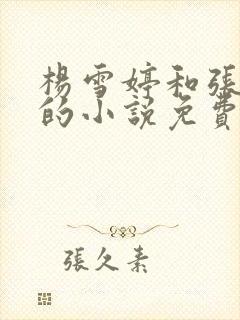 楊雪婷和張
的小說免費
張久素